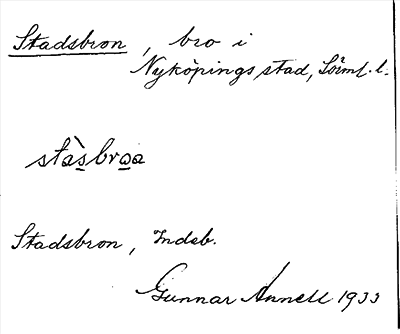 Stadsbron, bro i
Nyköpings stad, Söiml. l.
stàsbroa
Stadsbron, Indsb.
Gunnar Annell 1933